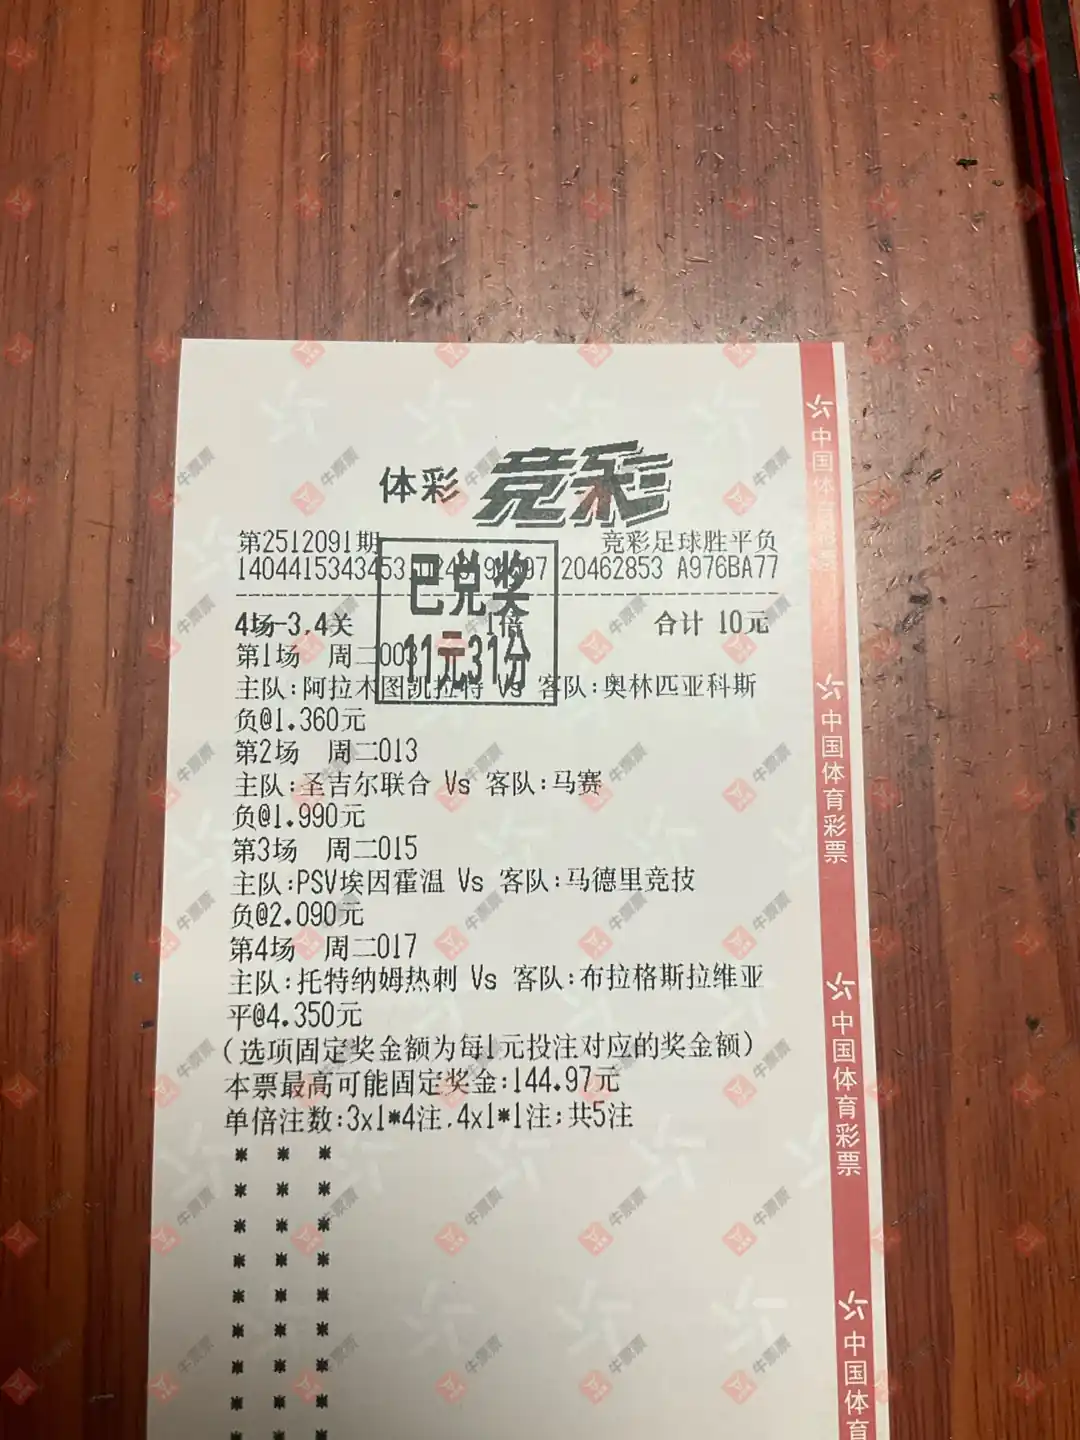 体彩 竞彩
第2512091期 竞彩足球胜平负
20462853 A976BA77
已兑奖
11元31分
4场-3,4关 1倍 合计 10元
第1场 周二003
主队:阿拉木图凯拉特 Vs 客队:奥林匹亚科斯
负@1.360元
第2场 周二013
主队:圣吉尔联合 Vs 客队:马赛
负@1.990元
第3场 周二015
主队:PSV埃因霍温 Vs 客队:马德里竞技
负@2.090元
第4场 周二017
主队:托特纳姆热刺 Vs 客队:布拉格斯拉维亚
平@4.350元
(选项固定奖金额为每1元投注对应的奖金额)
本票最高可能固定奖金:144.97元
单倍注数:3x1*4注,4x1*1注;共5注
中国体育彩票
中国体育彩票
中国体育彩票
中国体育
牛票票